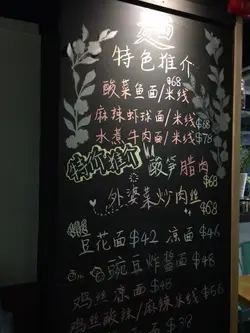 麺
特色推介
酸菜鱼面/米线 $68
麻辣虾球面/米线 $78
水煮牛肉面/米线 $78
特价推介 酸笋腊肉 $68
外婆菜炒肉丝 $68
豆花面 $42 凉面 $46
豌豆炸酱面 $48
鸡丝凉面 $48
鸡丝酸辣/麻辣米线 $56